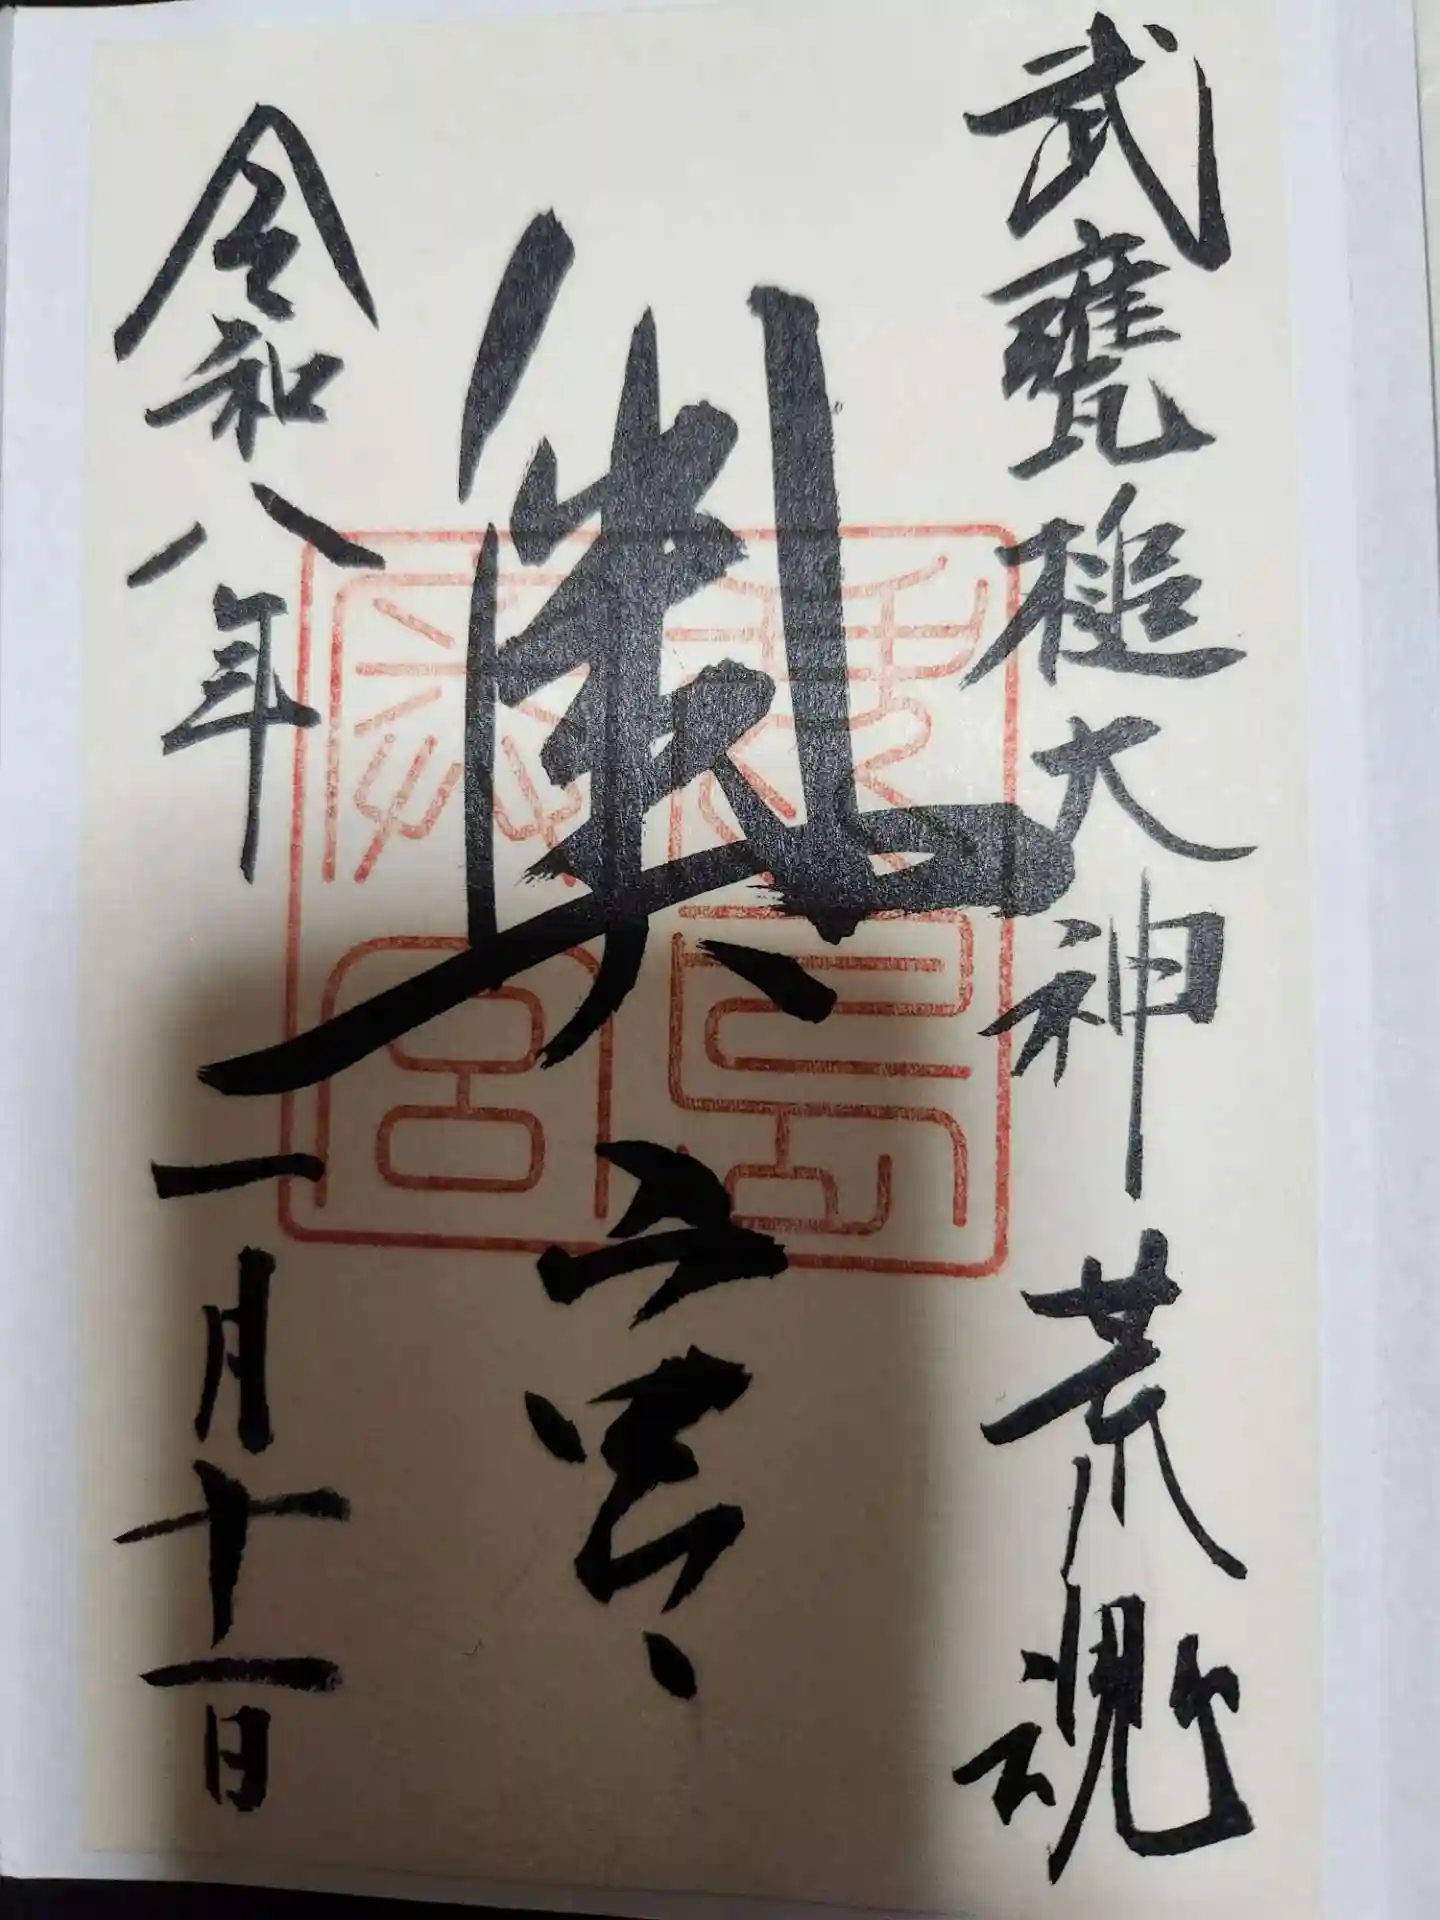 武甕槌大神荒魂
奥宮
鹿島
神宮
令和八年一月十一日